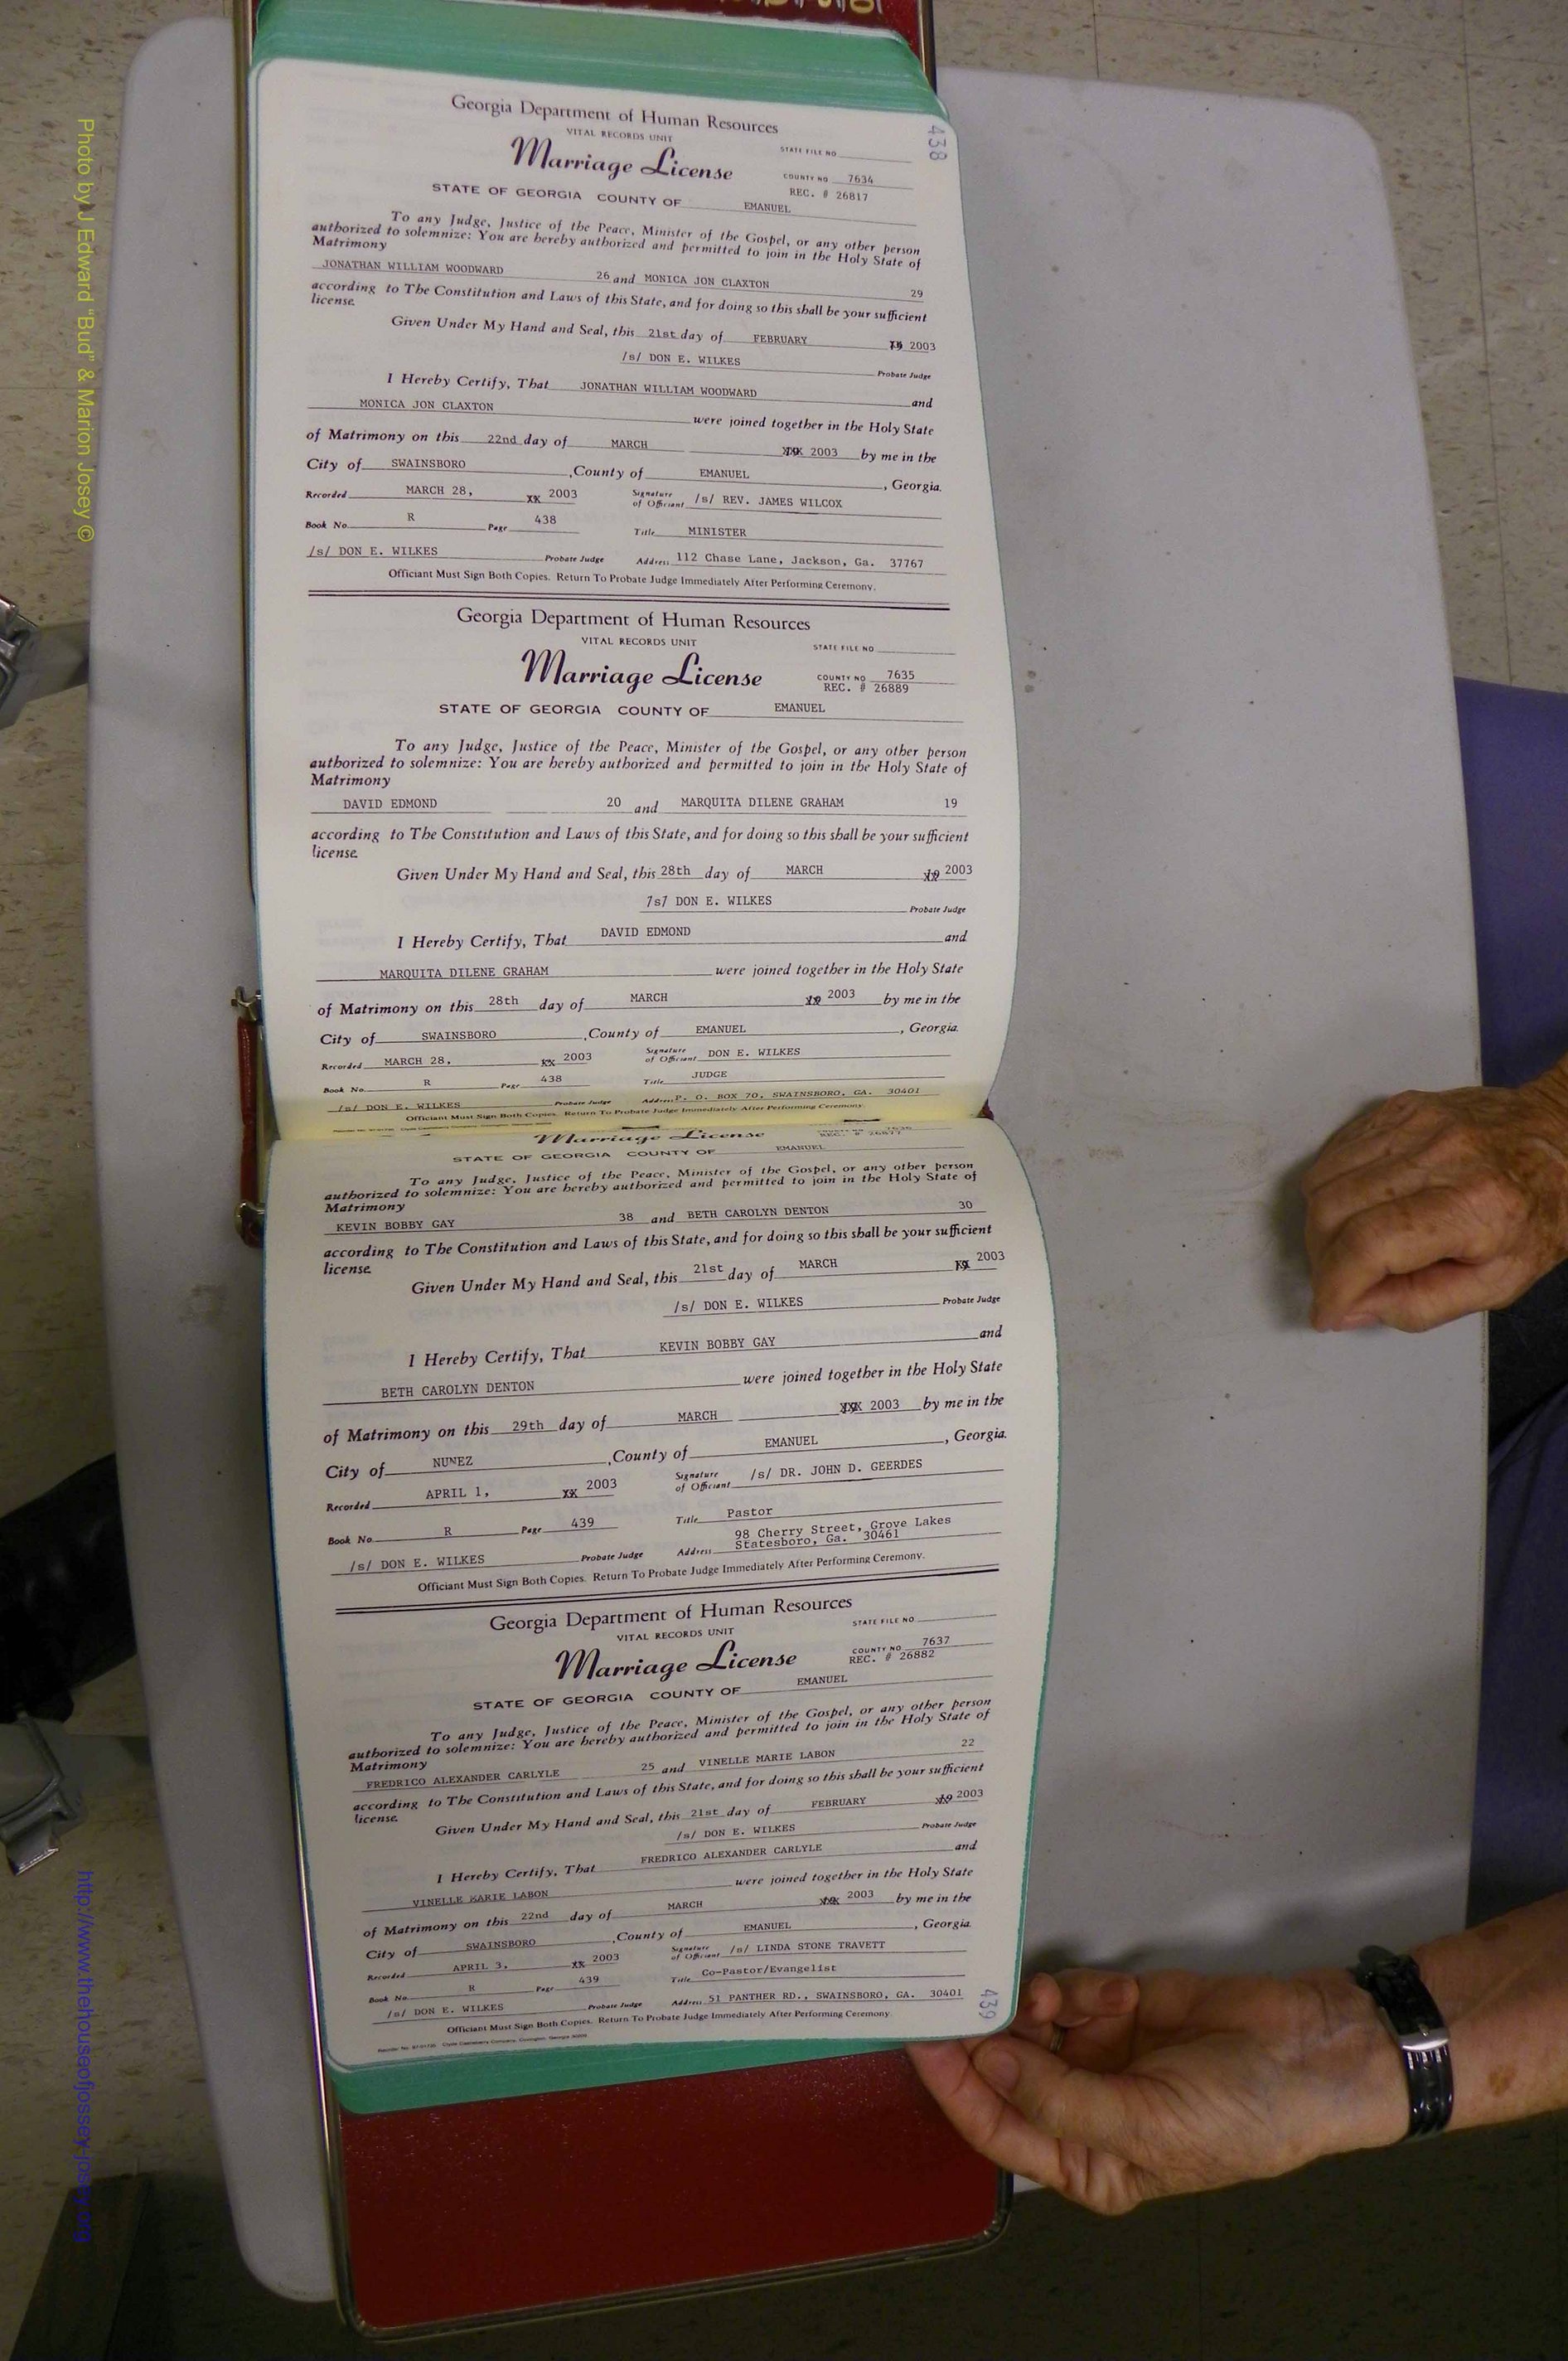 438
Georgia Department of Human Resources
VITAL RECORDS UNIT
STATE FILE NO
Marriage License
COUNTY NO 7634
REC. # 26817
STATE OF GEORGIA COUNTY OF EMANUEL
To any Judge, Justice of the Peace, Minister of the Gospel, or any other person
authorized to solemnize: You are hereby authorized and permitted to join in the Holy State of
Matrimony
JONATHAN WILLIAM WOODWARD 26 and MONICA JON CLAXTON 29
according to The Constitution and Laws of this State, and for doing so this shall be your sufficient
license.
Given Under My Hand and Seal, this 21st day of FEBRUARY 2003
/s/ DON E. WILKES
Probate Judge
I Hereby Certify, That JONATHAN WILLIAM WOODWARD and
MONICA JON CLAXTON were joined together in the Holy State
of Matrimony on this 22nd day of MARCH 2003 by me in the
City of SWAINSBORO ,County of EMANUEL , Georgia.
Recorded MARCH 28, XX 2003 Signature of Officiant /s/ REV. JAMES WILCOX
Book No. R Page 438 Title MINISTER
/s/ DON E. WILKES Probate Judge Address 112 Chase Lane, Jackson, Ga. 37767
Officiant Must Sign Both Copies. Return To Probate Judge Immediately After Performing Ceremony.
Georgia Department of Human Resources
VITAL RECORDS UNIT
STATE FILE NO
Marriage License
COUNTY NO 7635
REC. # 26889
STATE OF GEORGIA COUNTY OF EMANUEL
To any Judge, Justice of the Peace, Minister of the Gospel, or any other person
authorized to solemnize: You are hereby authorized and permitted to join in the Holy State of
Matrimony
DAVID EDMOND 20 and MARQUITA DILENE GRAHAM 19
according to The Constitution and Laws of this State, and for doing so this shall be your sufficient
license.
Given Under My Hand and Seal, this 28th day of MARCH 2003
/s/ DON E. WILKES
Probate Judge
I Hereby Certify, That DAVID EDMOND and
MARQUITA DILENE GRAHAM were joined together in the Holy State
of Matrimony on this 28th day of MARCH 2003 by me in the
City of SWAINSBORO ,County of EMANUEL , Georgia.
Recorded MARCH 28, XX 2003 Signature of Officiant DON E. WILKES
Book No. R Page 438 Title JUDGE
/s/ DON E. WILKES Probate Judge Address P. O. BOX 70, SWAINSBORO, GA. 30401
Officiant Must Sign Both Copies. Return To Probate Judge Immediately After Performing Ceremony.
Marriage License
REC. #
STATE OF GEORGIA COUNTY OF EMANUEL
To any Judge, Justice of the Peace, Minister of the Gospel, or any other person
authorized to solemnize: You are hereby authorized and permitted to join in the Holy State of
Matrimony
KEVIN BOBBY GAY 38 and BETH CAROLYN DENTON 30
according to The Constitution and Laws of this State, and for doing so this shall be your sufficient
license.
Given Under My Hand and Seal, this 21st day of MARCH 2003
/s/ DON E. WILKES
Probate Judge
I Hereby Certify, That KEVIN BOBBY GAY and
BETH CAROLYN DENTON were joined together in the Holy State
of Matrimony on this 29th day of MARCH 2003 by me in the
City of NUNEZ ,County of EMANUEL , Georgia.
Recorded APRIL 1, XX 2003 Signature of Officiant /s/ DR. JOHN D. GEERDES
Book No. R Page 439 Title Pastor
/s/ DON E. WILKES Probate Judge Address 98 Cherry Street, Grove Lakes
Statesboro, Ga. 30461
Officiant Must Sign Both Copies. Return To Probate Judge Immediately After Performing Ceremony.
Georgia Department of Human Resources
VITAL RECORDS UNIT
STATE FILE NO
Marriage License
COUNTY NO 7637
REC. # 26882
STATE OF GEORGIA COUNTY OF EMANUEL
To any Judge, Justice of the Peace, Minister of the Gospel, or any other person
authorized to solemnize: You are hereby authorized and permitted to join in the Holy State of
Matrimony
FREDRICO ALEXANDER CARLYLE 25 and VINELLE MARIE LABON 22
according to The Constitution and Laws of this State, and for doing so this shall be your sufficient
license.
Given Under My Hand and Seal, this 21st day of FEBRUARY 2003
/s/ DON E. WILKES
Probate Judge
I Hereby Certify, That FREDRICO ALEXANDER CARLYLE and
VINELLE MARIE LABON were joined together in the Holy State
of Matrimony on this 22nd day of MARCH 2003 by me in the
City of SWAINSBORO ,County of EMANUEL , Georgia
Recorded APRIL 3, XX 2003 Signature of Officiant /s/ LINDA STONE TRAVETT
Book No. R Page 439 Title Co-Pastor/Evangelist
/s/ DON E. WILKES Probate Judge Address 51 PANTHER RD., SWAINSBORO, GA. 30401
Officiant Must Sign Both Copies. Return To Probate Judge Immediately After Performing Ceremony.
439
Photo by J Edward "Bud" & Marion Josey ©
http://www.thehouseofjossey-josey.org